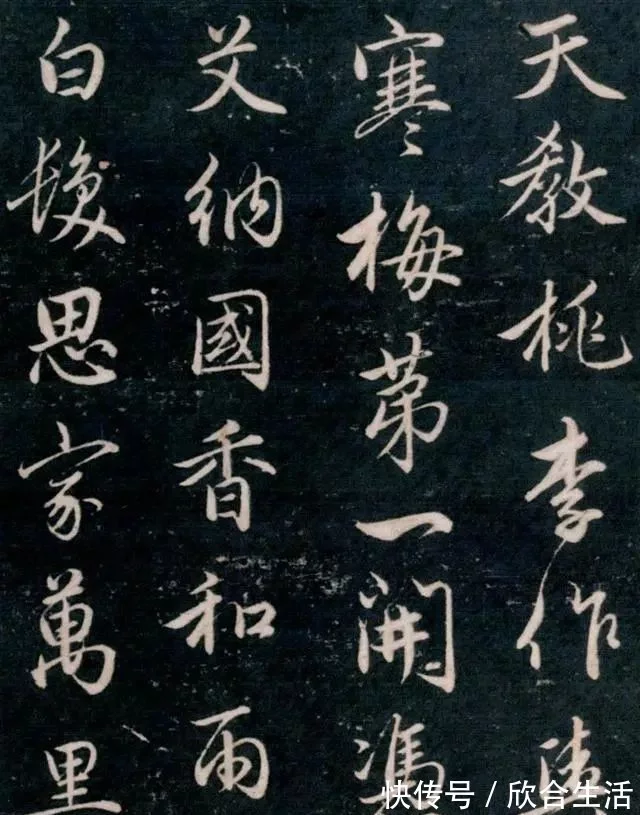 天教桃李作
寒梅苐一開馮
艾納國香和雨
白髮思家萬里
快传号 / 欣合生活